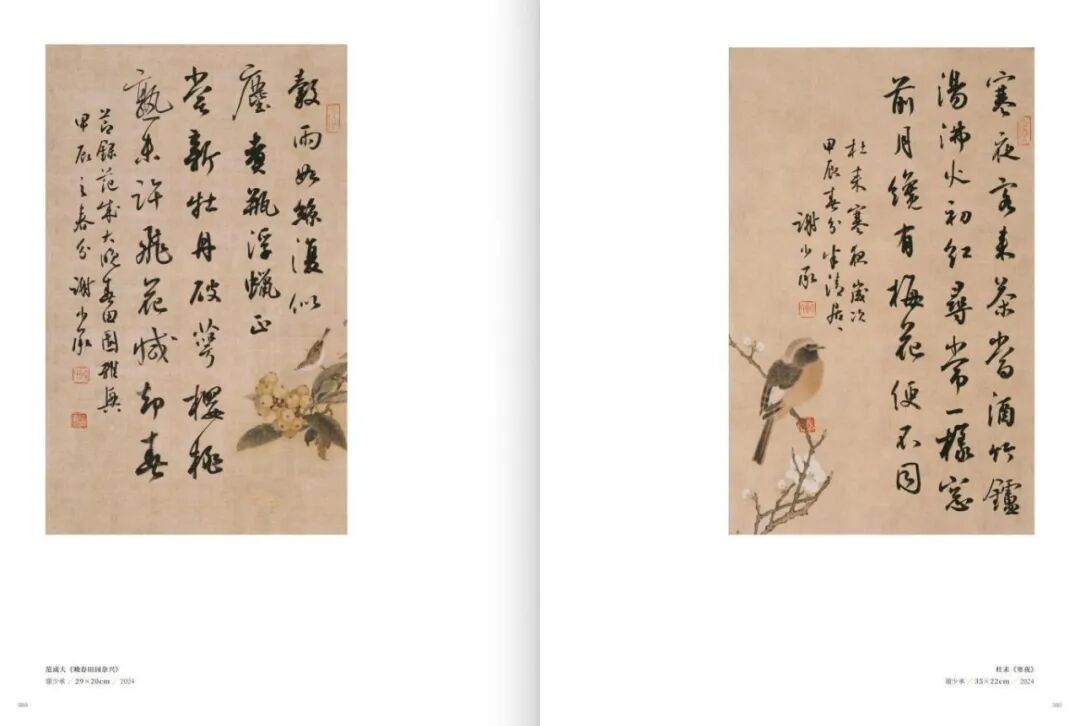 穀雨如絲復似
塵煮瓶浮蠟正
嘗新牡丹破萼櫻桃
熟未許飛花減却春
節錄范成大晚春田園雜興
甲辰之春分謝少承
范成大《晚春田园杂兴》
谢少承 / 29×20cm / 2024
寒夜客来茶當酒竹鑪
湯沸火初紅尋常一樣窓
前月纔有梅花便不同
杜耒寒夜歲次
甲辰春分半清居
謝少承
杜耒《寒夜》
谢少承 / 35×22cm / 2024